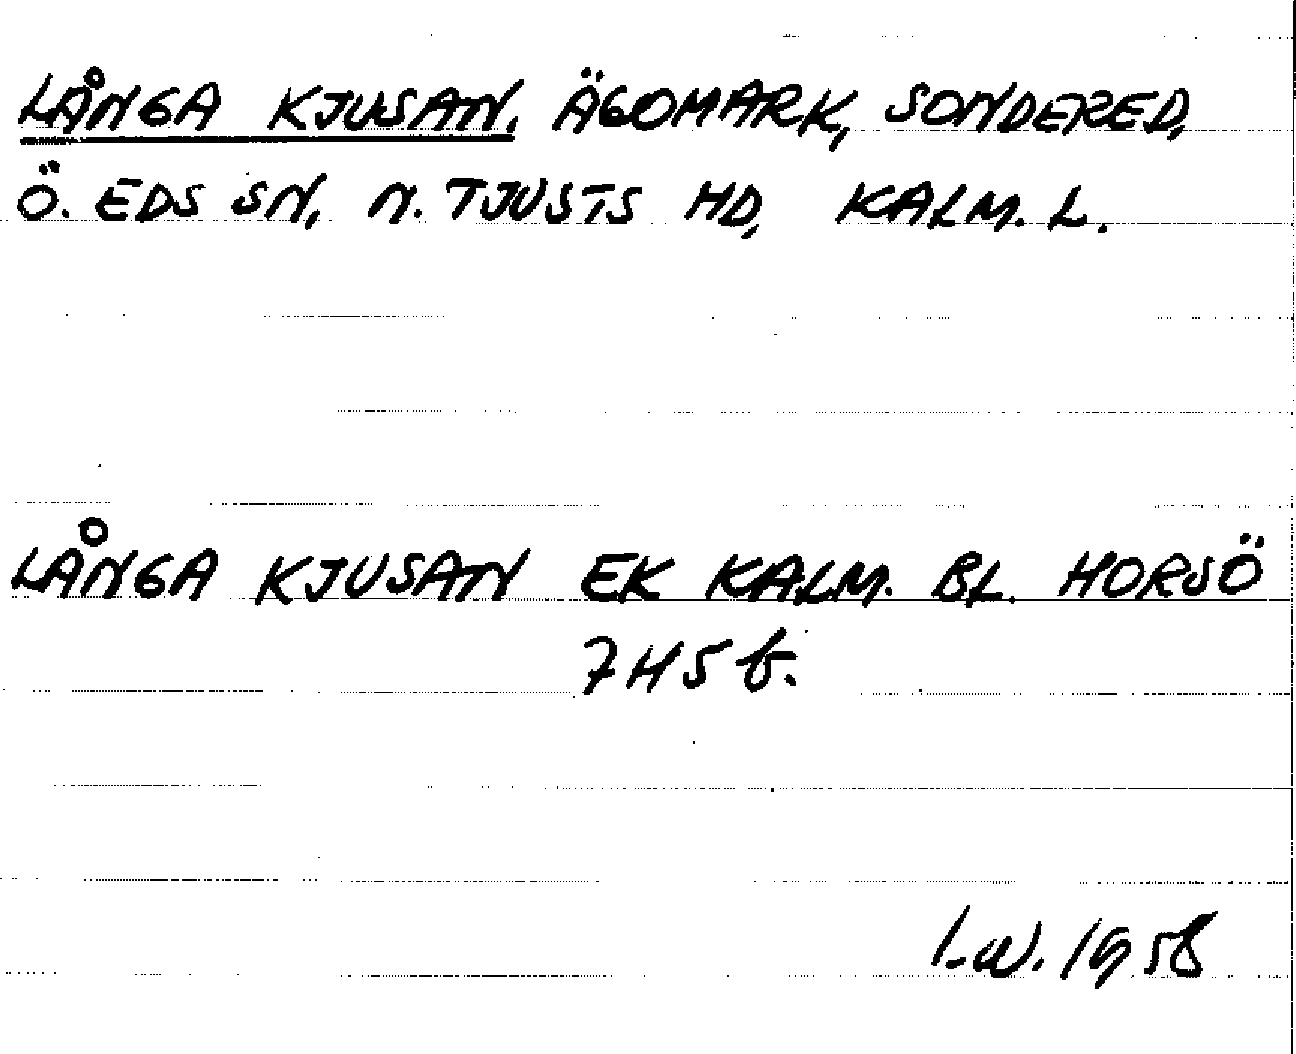 LÅNGA KJUSAN, ÄGOMARK, SONDERED,
Ö. EDS SN, N. TJUSTS HD, KALM. L.
LÅNGA KJUSAN EK KALM. BL. HORSÖ
7H5b.
I.W. 1958